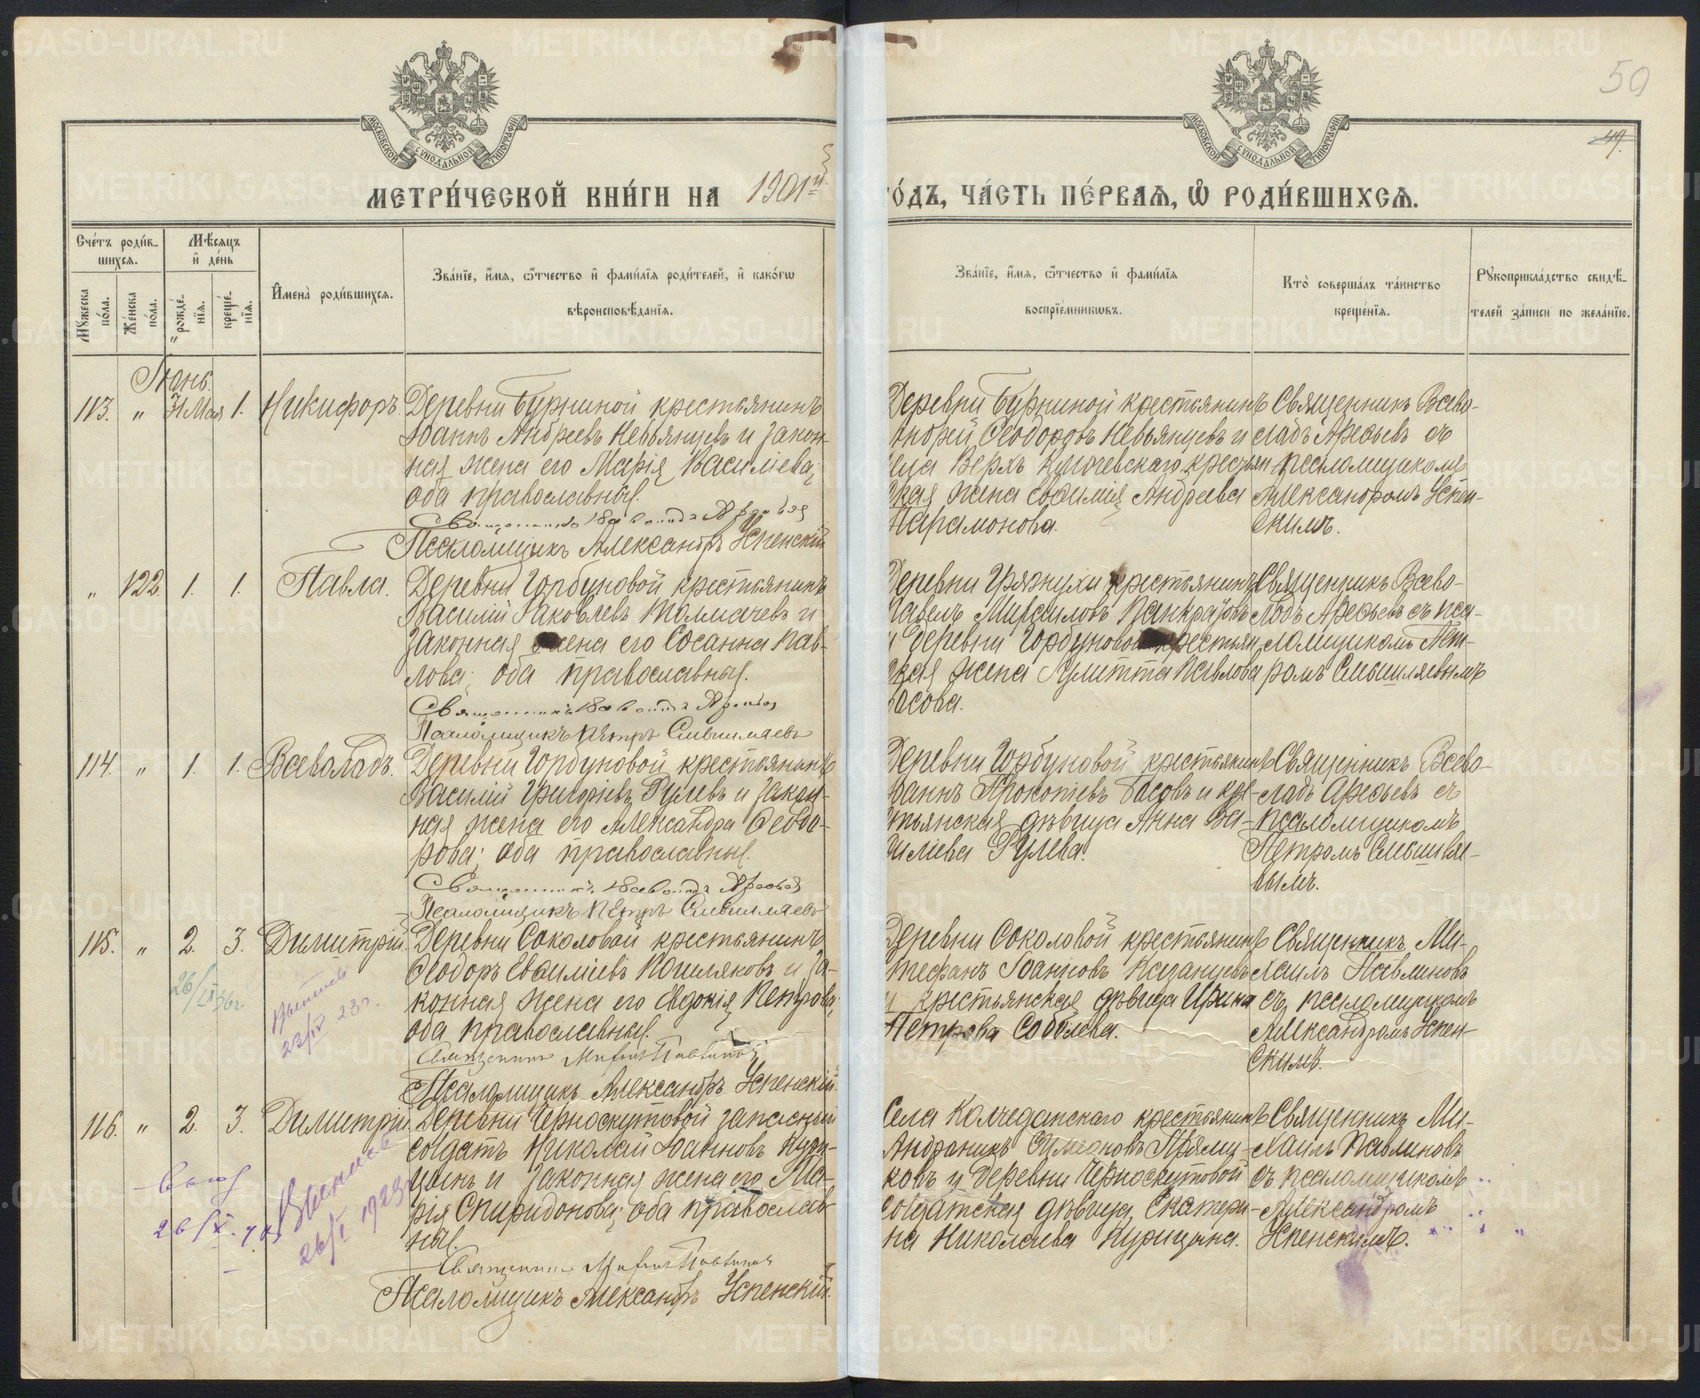 50
49.
МОСКОВСКОЙ СѴНОДАЛЬНОЙ ТИПОГРАФІИ
МОСКОВСКОЙ СѴНОДАЛЬНОЙ ТИПОГРАФІИ
МЕТРИ́ЧЕСКОЙ КНИ́ГИ НА 1901й
О́ДЪ, ЧА́СТЬ ПЕ́РВАѦ, Ѡ РОДИ́ВШИХСѦ.
Сче́тъ роди́в-
шихсѧ.
Мꙋжеска по́ла.
Же́нска по́ла.
Мѣ́сѧцъ и҆ де́нь
рожде́-нїѧ.
креще́-нїѧ.
И҆мена̀ роди́вшихсѧ.
Зва́нїе, и҆́мѧ, ѻ҆́тчество и҆ фами́лїѧ роди́телей, и҆ како́гѡ
вѣроисповѣ́данїѧ.
Зва́нїе, и҆́мѧ, ѻ҆́тчество и҆ фами́лїѧ
воспрїе́мникѡвъ.
Кто̀ соверша́лъ та́инство
креще́нїѧ.
Рꙋкоприкла́дство свидѣ́-
телей за́писи по жела́нїю.
Іюнь.
113. " 31 Мая 1. Никифоръ.
Деревни Буриной крестьянинъ
Іоаннъ Андреевъ Невьянцевъ и закон-
ная жена его Марія Василіева;
оба православныя.
Священникъ Всеволодъ Арефьев
Псаломщикъ Александръ Успенскій
Деревни Буриной крестьянинъ
Андрей Ѳеодоровъ Невьянцевъ и
села Верхъ Ключевскаго крестьян
ская жена Евфимія Андреева
Парамонова.
Священникъ Всево-
лодъ Арефьевъ съ
псаломщикомъ
Александромъ Успен-
скимъ.
" 122. 1. 1. Павла.
Деревни Горбуновой крестьянинъ
Василій Іаковлевъ Толмачевъ и
законная жена его Сосанна Пав-
лова; оба православныя.
Священникъ Всеволодъ Арефьев
Псаломщикъ Петръ Смышляевъ
Деревни Грязнухи крестьянинъ
Павелъ Панкратовъ
и деревни Горбуновой крестьян
ская жена Іулитта Павлова
Басова.
Священникъ Всево-
лодъ Арефьевъ съ пса-
ломщикомъ Пет-
ромъ Смышляевымъ
114. " 1. 1. Всеволодъ.
Деревни Горбуновой крестьянинъ
Василій Григорьевъ Рулевъ и закон-
ная жена его Александра Ѳеодо-
рова; оба православныя.
Священникъ Всеволодъ Арефьев
Псаломщикъ Петръ Смышляевъ
Деревни Горбуновой крестьянинъ
Іоаннъ Прокопіевъ Басовъ и кре-
стьянская дѣвица Анна Ва-
силіева Рулева.
Священникъ Всево-
лодъ Арефьевъ съ
псаломщикомъ
Петромъ Смышляе-
вымъ.
115. " 2. 3. Димитрій.
26/IX 36г
выпись
22/IV 23г.
Деревни Соколовой крестьянинъ
Ѳеодоръ Евфиміевъ Кошляковъ и за-
конная жена его Евдокія Петрова,
оба православныя.
Священникъ Михаил Павлинов
Псаломщикъ Александръ Успенскій
Деревни Соколовой крестьянинъ
Стефанъ Іоанновъ Казанцевъ
и крестьянская дѣвица Ирина
Петрова Соболева.
Священникъ Ми-
хаилъ Павлиновъ
съ псаломщикомъ
Александромъ Успен-
скимъ.
116. " 2. 3. Димитрій
Выпись
26/I 1923
Деревни Черноскутовой запасный
солдатъ Николай Іоанновъ Кури-
цынъ и законная жена его Ма-
рія Спиридонова; оба православ-
ныя.
Священникъ Михаил Павлинов
Псаломщикъ Александръ Успенскій.
Села Колчеданскаго крестьянинъ
Андроникъ Сумеоновъ Прями-
ковъ и деревни Черноскутовой
солдатская дѣвица Екатери-
на Николаева Курицына.
Священникъ Ми-
хаилъ Павлиновъ
съ псаломщикомъ
Александромъ
Успенскимъ.
METRIKI.GASO-URAL.RU